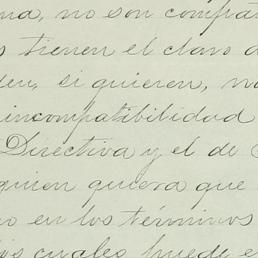 na, no son compati
s tienen el claro d
den, si quieren, no
incompatibilidad
Directiva y el de S
quien quiera que
o en los términos
los cuales puede e